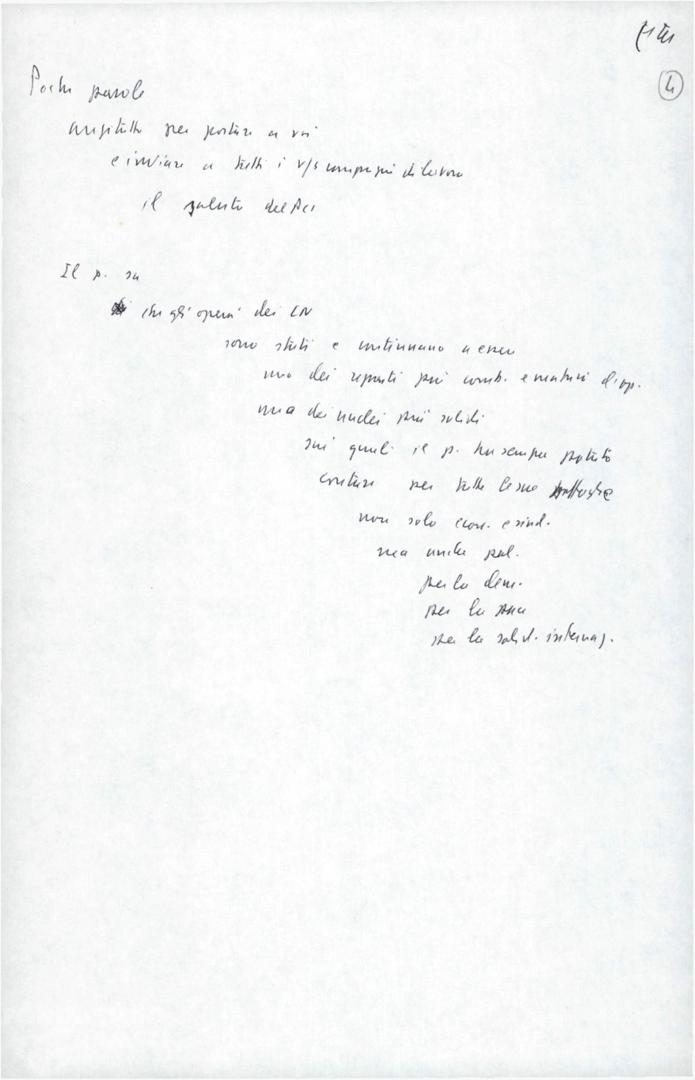 4
Poche parole
anzitutto per portare a voi
e inviare a tutti i v/s compagni di lavoro
il saluto del Pci
Il p. sa
che gli operai dei CN
sono stati e continuano a essere
uno dei reparti più comb. e maturi d. op.
uno dei nuclei più solidi
sui quali il p. ha sempre potuto
contare per tutte le sue battaglie
non solo econ. e sind.
ma anche pol.
per la dem.
per la pace
per la solid. internaz.